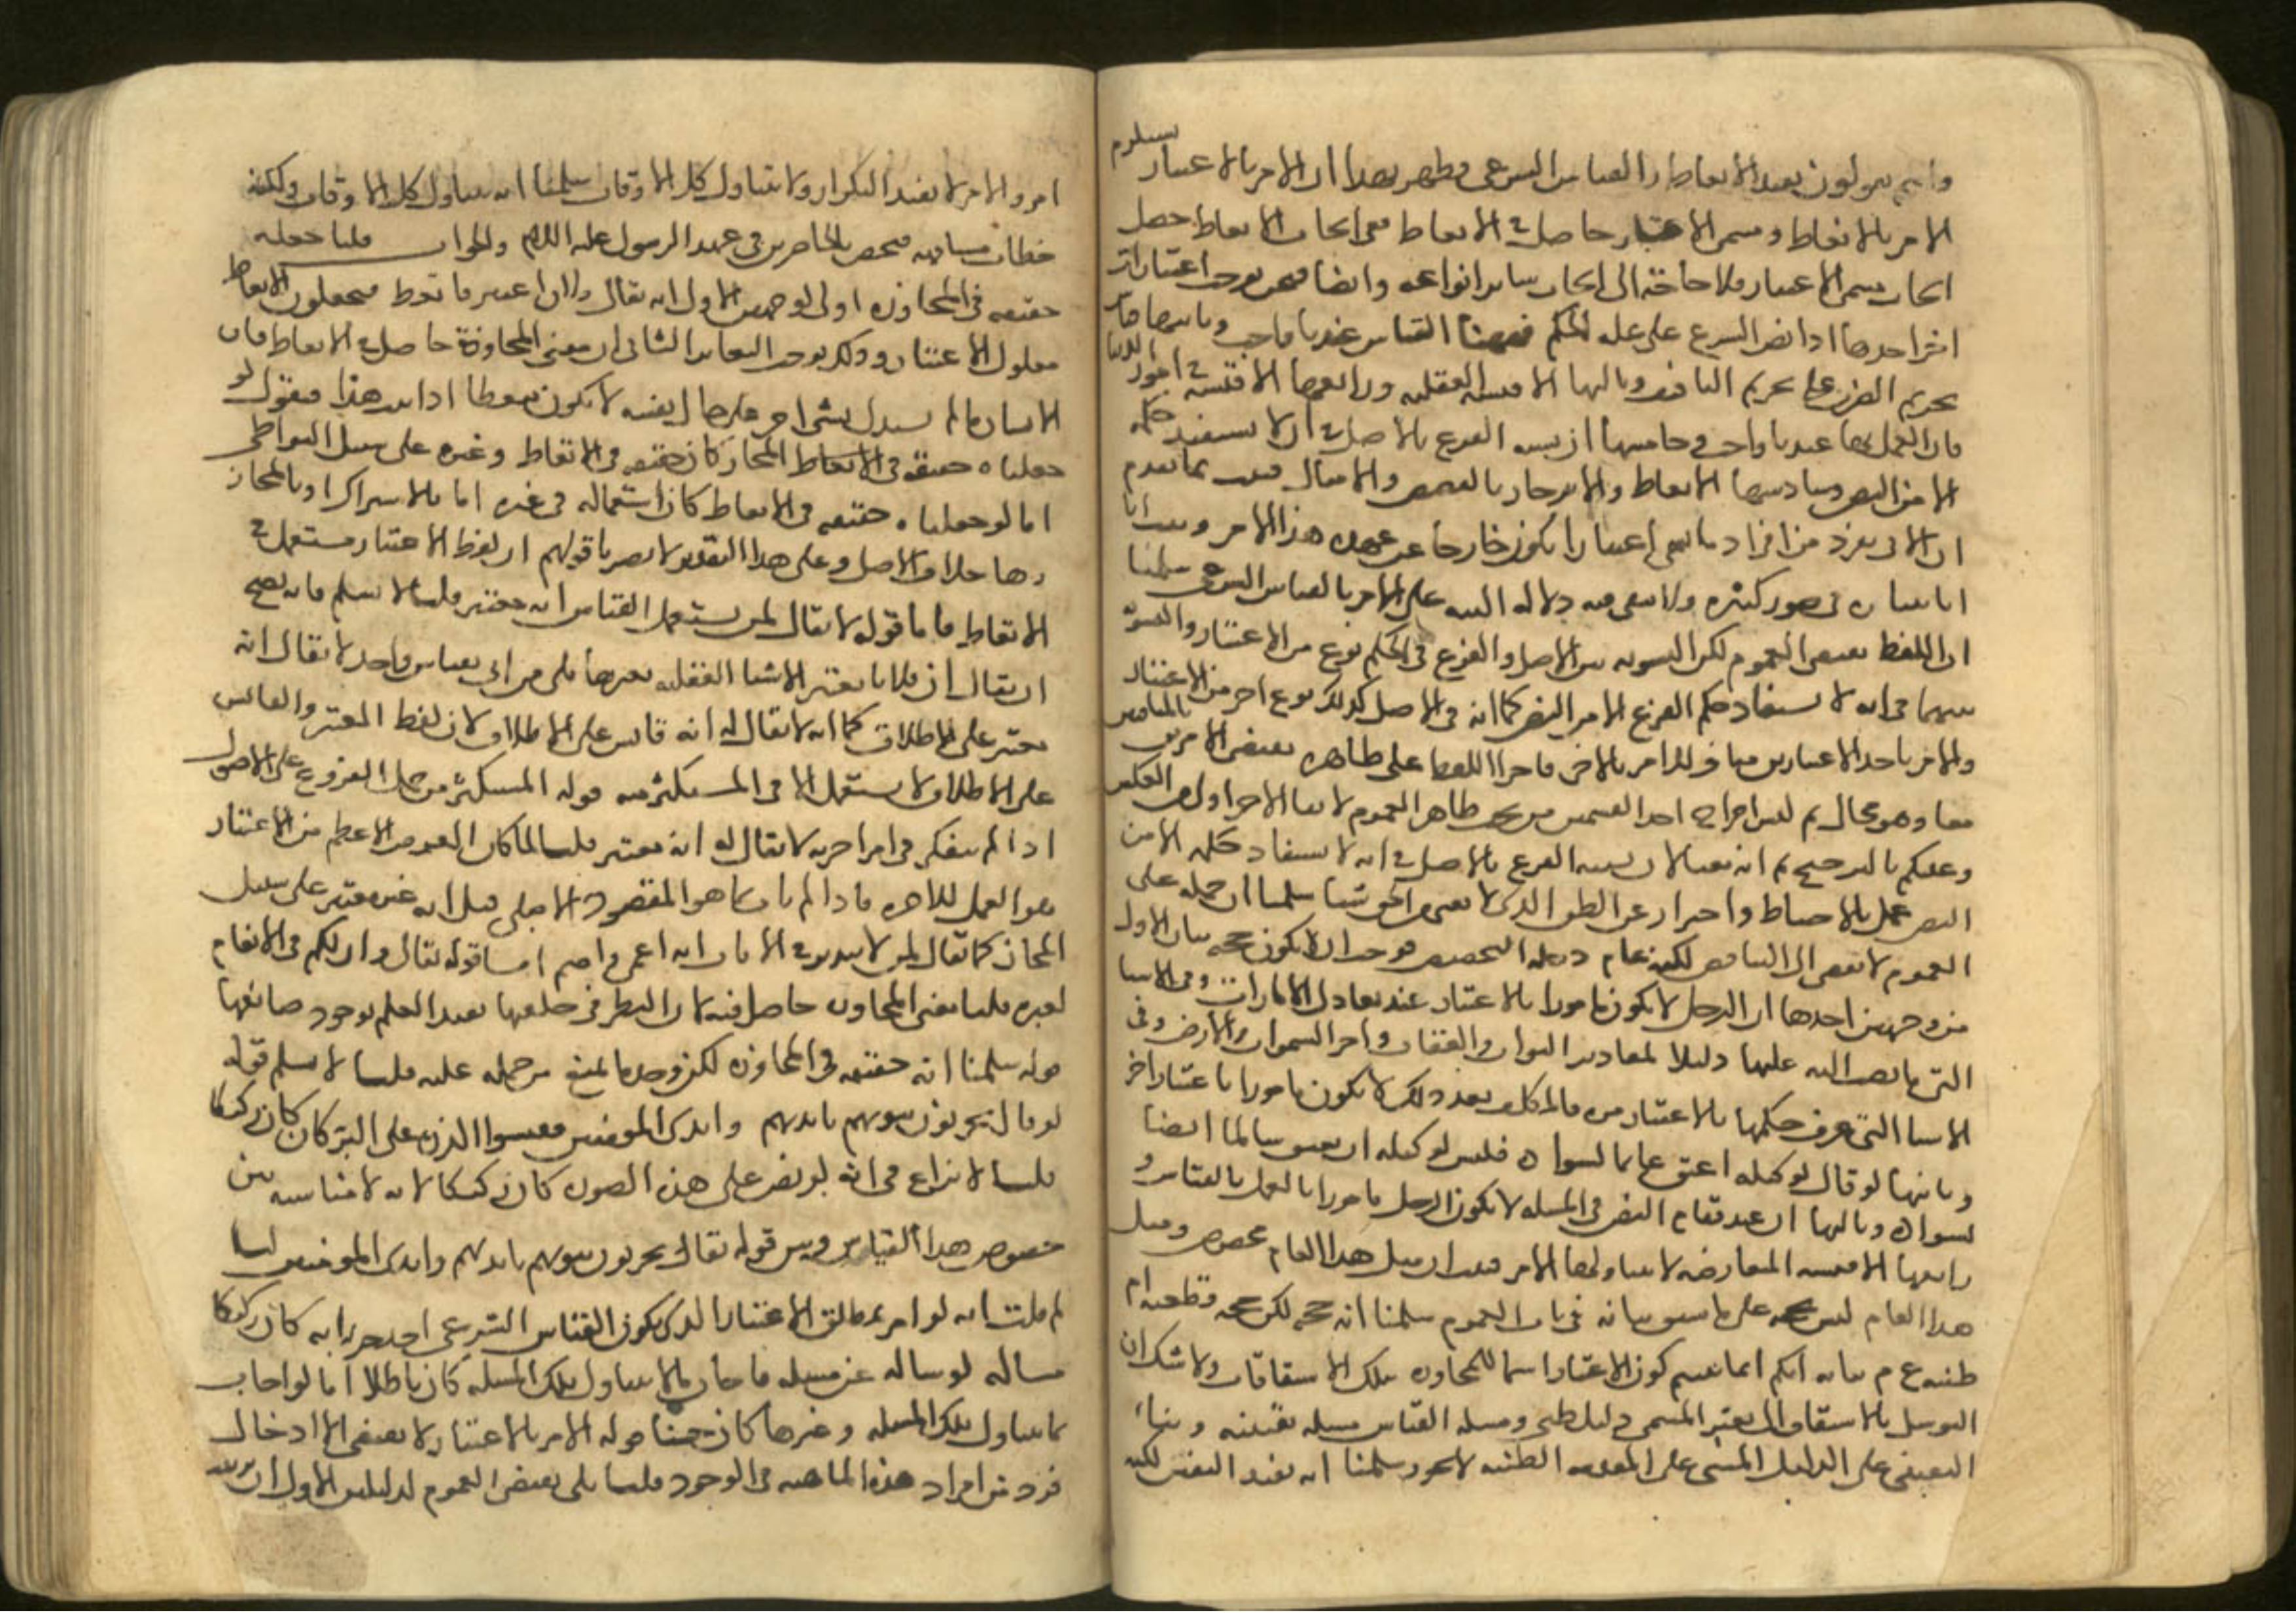 وانتم تقولون بعد الاتعاظ والقياس الشرعى فظهر بهذا ان الامر بالاعتبار يستلزم
الامر بالاتعاظ ومسمى الاعتبار حاصل فى الاتعاظ ففى ايجاب الاتعاظ حصل
ايجاب مسمى الاعتبار فلا حاجة الى ايجاب سائر انواعه وايضا فنحن نوجب اعتبارات
اخر احدها اذا نص الشرع على علة الحكم فههنا القياس عندنا واجب وثانيها قياس
تحريم الضرب على تحريم التافيف وثالثها الاقيسة العقلية ورابعها الاقيسة فى امور الدنيا
فان العمل بها عندنا واجب وخامسها ان يشبه الفرع بالاصل فى ان لا نستفيد حكمه
الا من النص وسادسها الاتعاظ والانزجار بالقصص والامثال فثبت بما تقدم
ان الآتى بفرد من افراد ما يسمى اعتبارا يكون خارجا عن عهدة هذا الامر وثبت انا
اتينا به فى صور كثيرة ولا يبقى فيه دلالة البتة على الامر بالقياس الشرعى سلمنا
ان اللفظ يقتضى العموم لكن التسوية بين الاصل والفرع فى الحكم نوع من الاعتبار والتسوية
بينهما فى انه لا يستفاد حكم الفرع الا من النص كما انه فى الاصل كذلك نوع اخر من الاعتبار
والامر باحد الاعتبارين مناف للامر بالاخر فاجراء اللفظ على ظاهره يقتضى الامر بالمتنافيين
معا وهو محال ثم ليس اخراج احد القسمين من تحت ظاهر العموم لابقاء الاخر اولى من العكس
وعليكم بالترجيح ثم انه معنا لان تشبيه الفرع بالاصل فى انه لا يستفاد حكمه الا من
النص عمل بالاحتياط واحتراز عن الظن الذى لا يغنى من الحق شيئا سلمنا ان حمله على
العموم لا يفضى الى التناقض لكنه عام دخله التخصيص فوجب ان لا يكون حجة بيان الاول
من وجهين احدها ان الرجل لا يكون مامورا بالاعتبار عند تعادل الامارات وفى الاشيا
التى ما نصب الله عليها دليلا كمقادير الثواب والعقاب واجزاء السموات والارض وفى
الاشيا التى عرف حكمها بالاعتبار مرة فالمكلف بعد ذلك لا يكون مامورا باعتبار اخر
وثانيها لو قال لوكيله اعتق غانما لسواده فليس لوكيله ان يعتق سالما ايضا
لسواده وثالثها ان عند قيام النص فى المسئلة لا يكون الرجل مامورا بالعمل بالقياس و
رابعها الاقيسة المتعارضة لا يتناولها الامر فثبت ان مثل هذا العام مخصوص ومثل
هذا العام ليس بحجة على ما سبق بيانه فى باب العموم سلمنا انه حجة لكن حجة قطعية ام
ظنية ع م بيانه انكم انما بينتم كون الاعتبار اسما للمجاوزة بتلك الاشتقاقات ولا شك ان
التوسل بالاشتقاق الى تعيين المسمى دليل ظنى ومسئلة القياس مسئلة يقينية وبناء
اليقينى على الدليل المبنى على المقدمة الظنية لا يجوز سلمنا انه يفيد اليقين لكنه
امر والامر لا يفيد التكرار ولا يتناول كل الاوقات سلمنا انه يتناول كل الاوقات ولكنه
خطاب مشافهة فيختص بالحاضرين فى عهد الرسول عليه السلام والجواب قلنا جعله
حقيقة فى المجاوزة اولى لوجهين الاول انه يقال فلان اعتبر فاتعظ فيجعلون الاتعاظ
معلول الاعتبار وذلك يوجب التغاير الثانى ان معنى المجاوزة حاصل فى الاتعاظ فان
الانسان ما لم يستدل بشى اخر على حال نفسه لا يكون متعظا اذا ثبت هذا فنقول لو
جعلناه حقيقة فى المجاز كان حقيقة فى الاتعاظ وغيره على سبيل التواطى
اما لو جعلناه حقيقة فى الاتعاظ كان استعماله فى غيره اما بالاشتراك او بالمجاز
وهما خلاف الاصل وعلى هذا التقدير لا يضرنا قولهم ان لفظ الاعتبار مستعمل فى
الاتعاظ واما قوله لا يقال لمن يستعمل القياس انه معتبر قلنا لا نسلم فانه يصح
ان يقال ان فلانا يعتبر الاشيا العقلية بغيرها بلى من اتى بقياس واحد لا يقال انه
معتبر على الاطلاق كما انه لا يقال له انه قايس على الاطلاق لان لفظ المعتبر والقايس
على الاطلاق لا يستعمل الا فى المستكثر منه قوله المستكثر من حمل الفروع على الاصول
اذا لم يتفكر فى امر اخرته لا يقال له انه معتبر قلنا لما كان الغرض الاعظم من الاعتبار
هو العمل للاخرة فاذا لم يات بما هو المقصود الاصلى قيل انه غير معتبر على سبيل
المجاز كما يقال لمن لا يتدبر فى الايات انه اعمى واصم اما قوله تعالى وان لكم فى الانعام
لعبرة قلنا معنى المجاوزة حاصل فيه لان النظر فى خلقها يفيد العلم بوجود صانعها
قوله سلمنا انه حقيقة فى المجاوزة لكن وجد ما يمنع من حمله عليه قلنا لا نسلم قوله
لو قال يخربون بيوتهم بايديهم وايدى المومنين فقيسوا الذرة على البر كان ركيكا
قلنا لا نزاع فى انه لو نص على هذه الصورة كان ركيكا لانه لا مناسبة بين
خصوص هذا القياس وبين قوله تعالى يخربون بيوتهم بايديهم وايدى المومنين لكنا
لم قلت انه لو امر بمطلق الاعتبار الذى يكون القياس الشرعى احد جزئياته كان ركيكا
مثاله لو ساله عن مسئلة فاجاب بما لا يتناول تلك المسئلة كان باطلا اما لو اجاب
بما يتناول تلك المسئلة وغيرها كان حسنا قوله الامر بالاعتبار لا يقتضى الا ادخال
فرد من افراد هذه الماهية فى الوجود قلنا بلى يقتضى العموم لدليلين الاول ان ترتيب